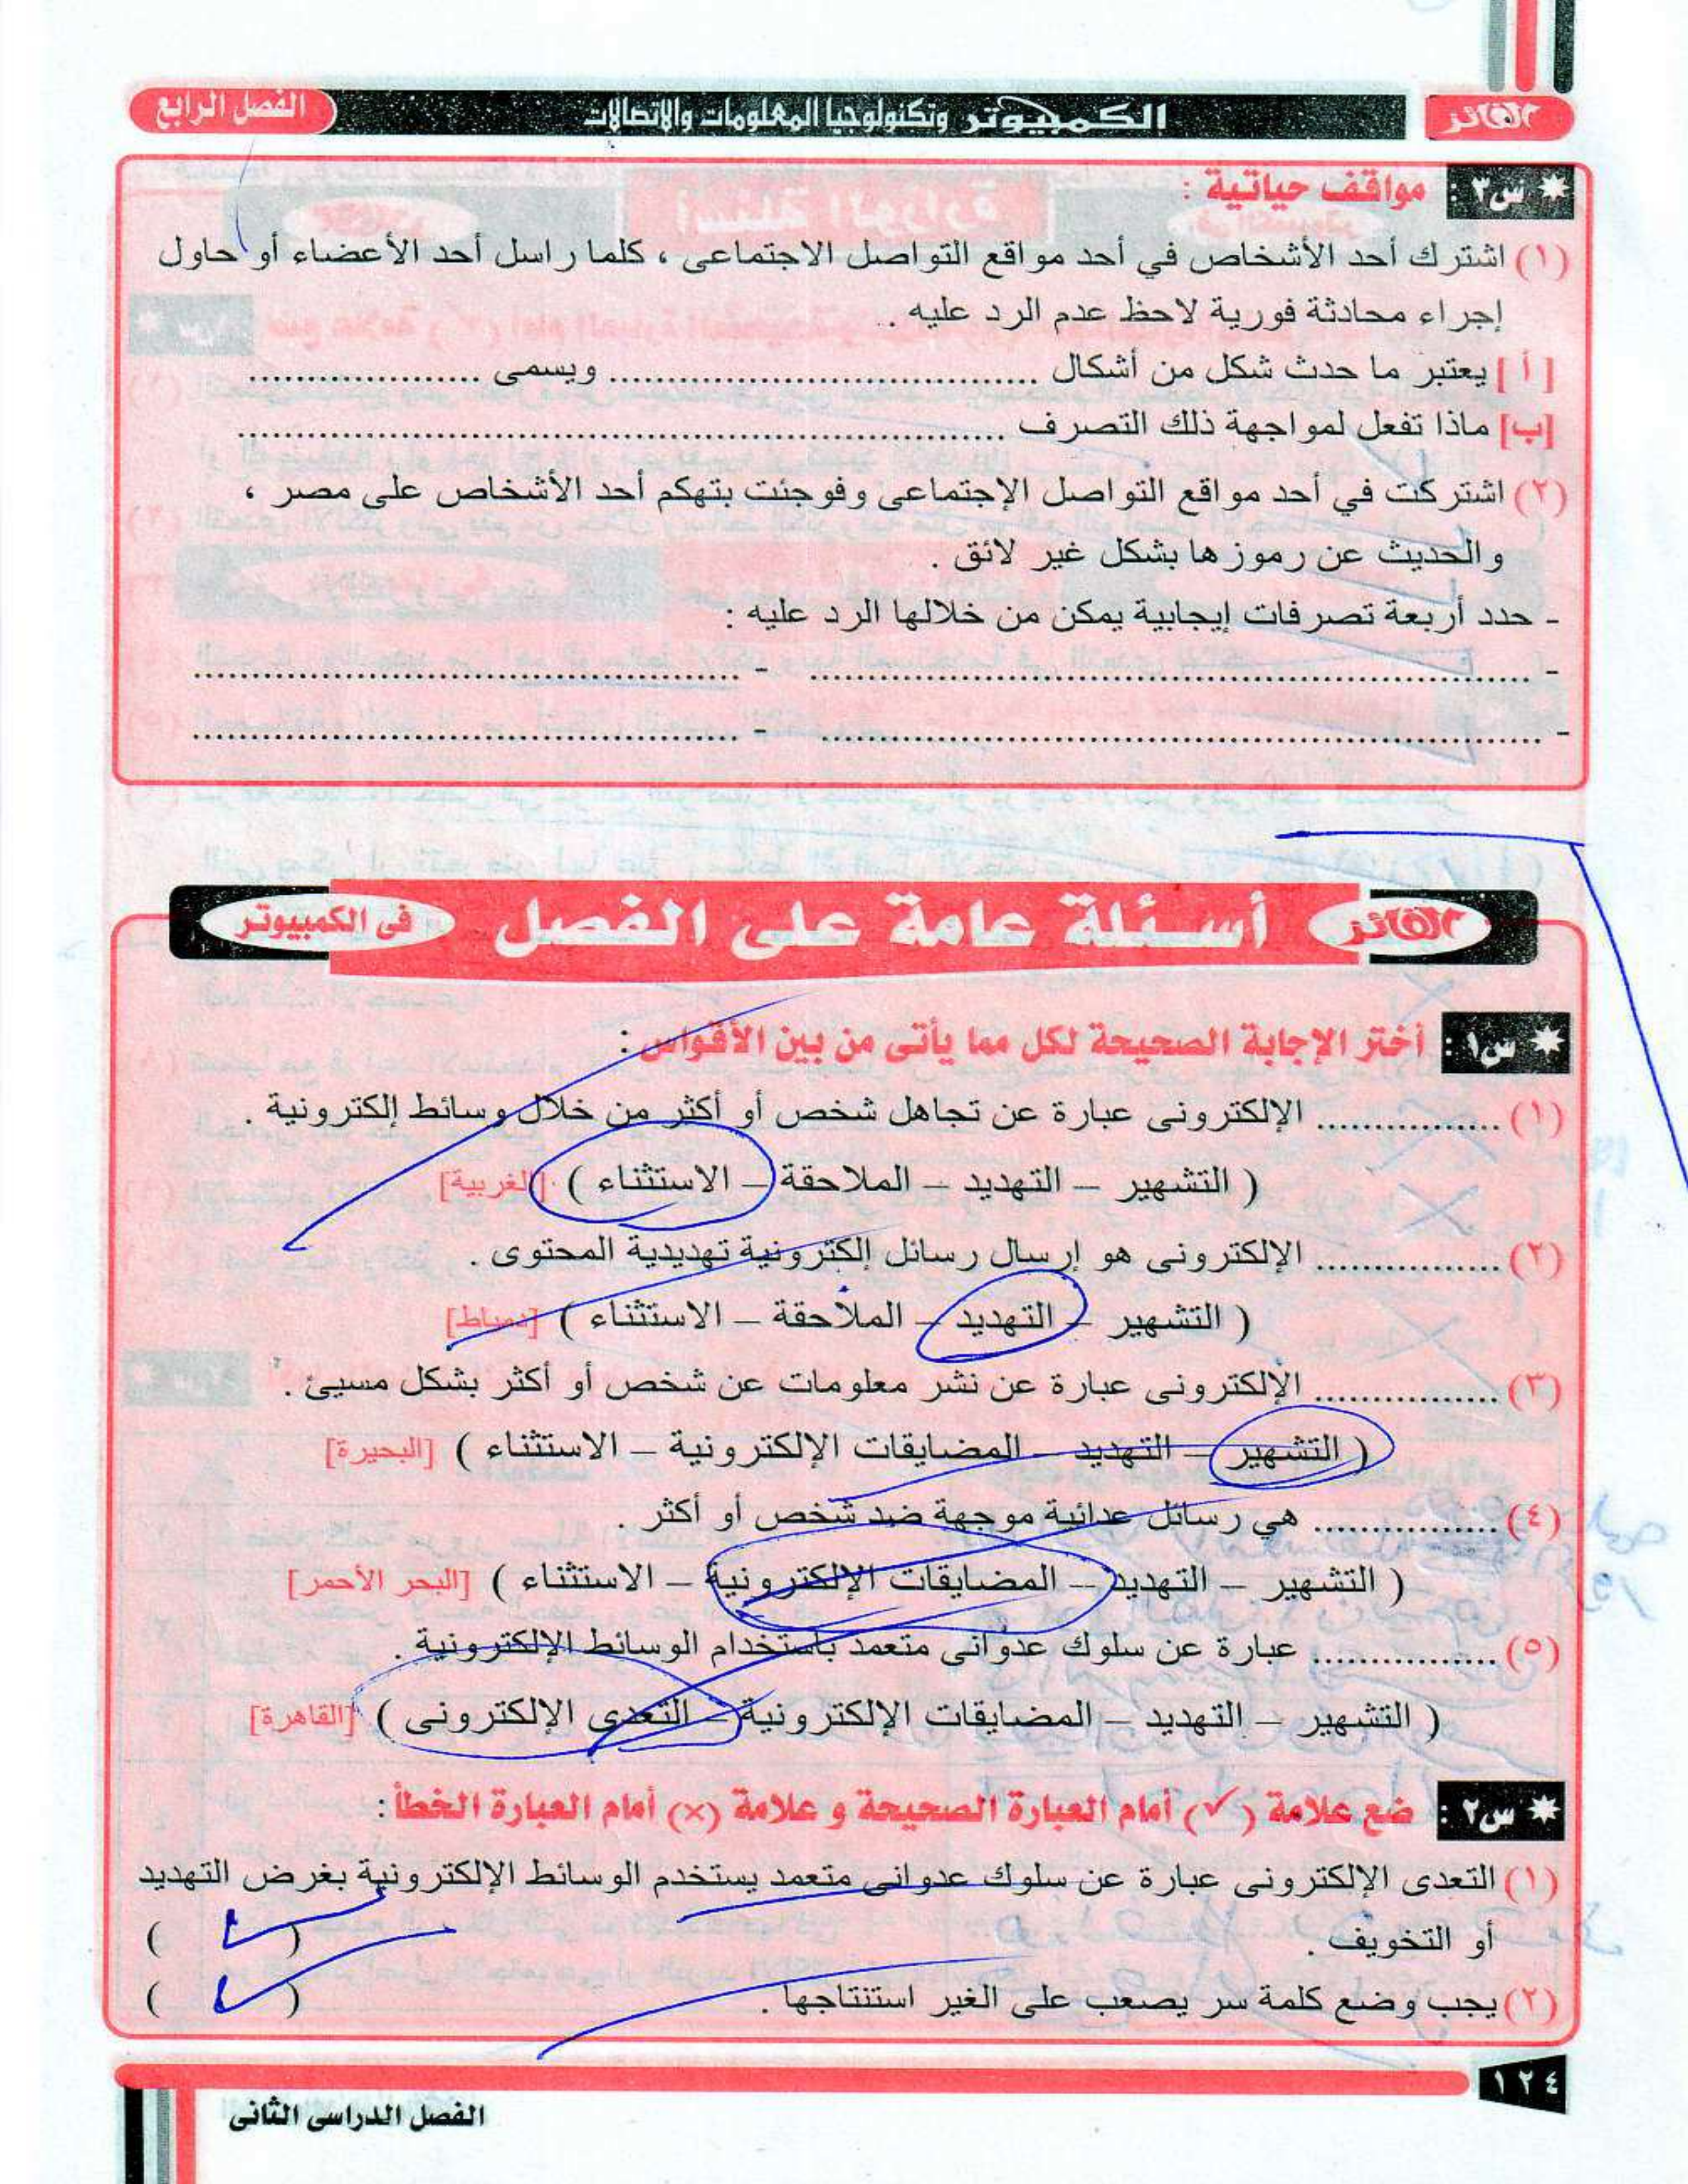 الفائز
الكمبيوتر وتكنولوجيا المعلومات والاتصالات
الفصل الرابع
* س٣ : مواقف حياتية :
(١) اشترك أحد الأشخاص في أحد مواقع التواصل الاجتماعى ، كلما راسل أحد الأعضاء أو حاول
إجراء محادثة فورية لاحظ عدم الرد عليه .
[ أ ] يعتبر ما حدث شكل من أشكال ........................................ ويسمى ......................
[ب] ماذا تفعل لمواجهة ذلك التصرف ........................................................................
(٢) اشتركت في أحد مواقع التواصل الإجتماعى وفوجئت بتهكم أحد الأشخاص على مصر ،
والحديث عن رموزها بشكل غير لائق .
- حدد أربعة تصرفات إيجابية يمكن من خلالها الرد عليه :
- .................................................................... - ....................................................
- .................................................................... - ....................................................
الفائز أسئلة عامة على الفصل فى الكمبيوتر
* س١ : أختر الإجابة الصحيحة لكل مما يأتى من بين الأقواس :
(١) ................. الإلكترونى عبارة عن تجاهل شخص أو أكثر من خلال وسائط إلكترونية .
( التشهير – التهديد – الملاحقة – الاستثناء ) [الغربية]
(٢) ................. الإلكترونى هو إرسال رسائل إلكترونية تهديدية المحتوى .
( التشهير – التهديد – الملاحقة – الاستثناء ) [دمياط]
(٣) ................. الإلكترونى عبارة عن نشر معلومات عن شخص أو أكثر بشكل مسيئ .
( التشهير – التهديد – المضايقات الإلكترونية – الاستثناء ) [البحيرة]
(٤) ................. هي رسائل عدائية موجهة ضد شخص أو أكثر .
( التشهير – التهديد – المضايقات الإلكترونية – الاستثناء ) [البحر الأحمر]
(٥) ................. عبارة عن سلوك عدوانى متعمد بأستخدام الوسائط الإلكترونية .
( التشهير – التهديد – المضايقات الإلكترونية – التعدى الإلكترونى ) [القاهرة]
* س٢ : ضع علامة (✓) أمام العبارة الصحيحة و علامة (×) أمام العبارة الخطأ :
(١) التعدى الإلكترونى عبارة عن سلوك عدوانى متعمد يستخدم الوسائط الإلكترونية بغرض التهديد
أو التخويف . ( ✓ )
(٢) يجب وضع كلمة سر يصعب على الغير استنتاجها . ( ✓ )
١٢٤
الفصل الدراسى الثانى